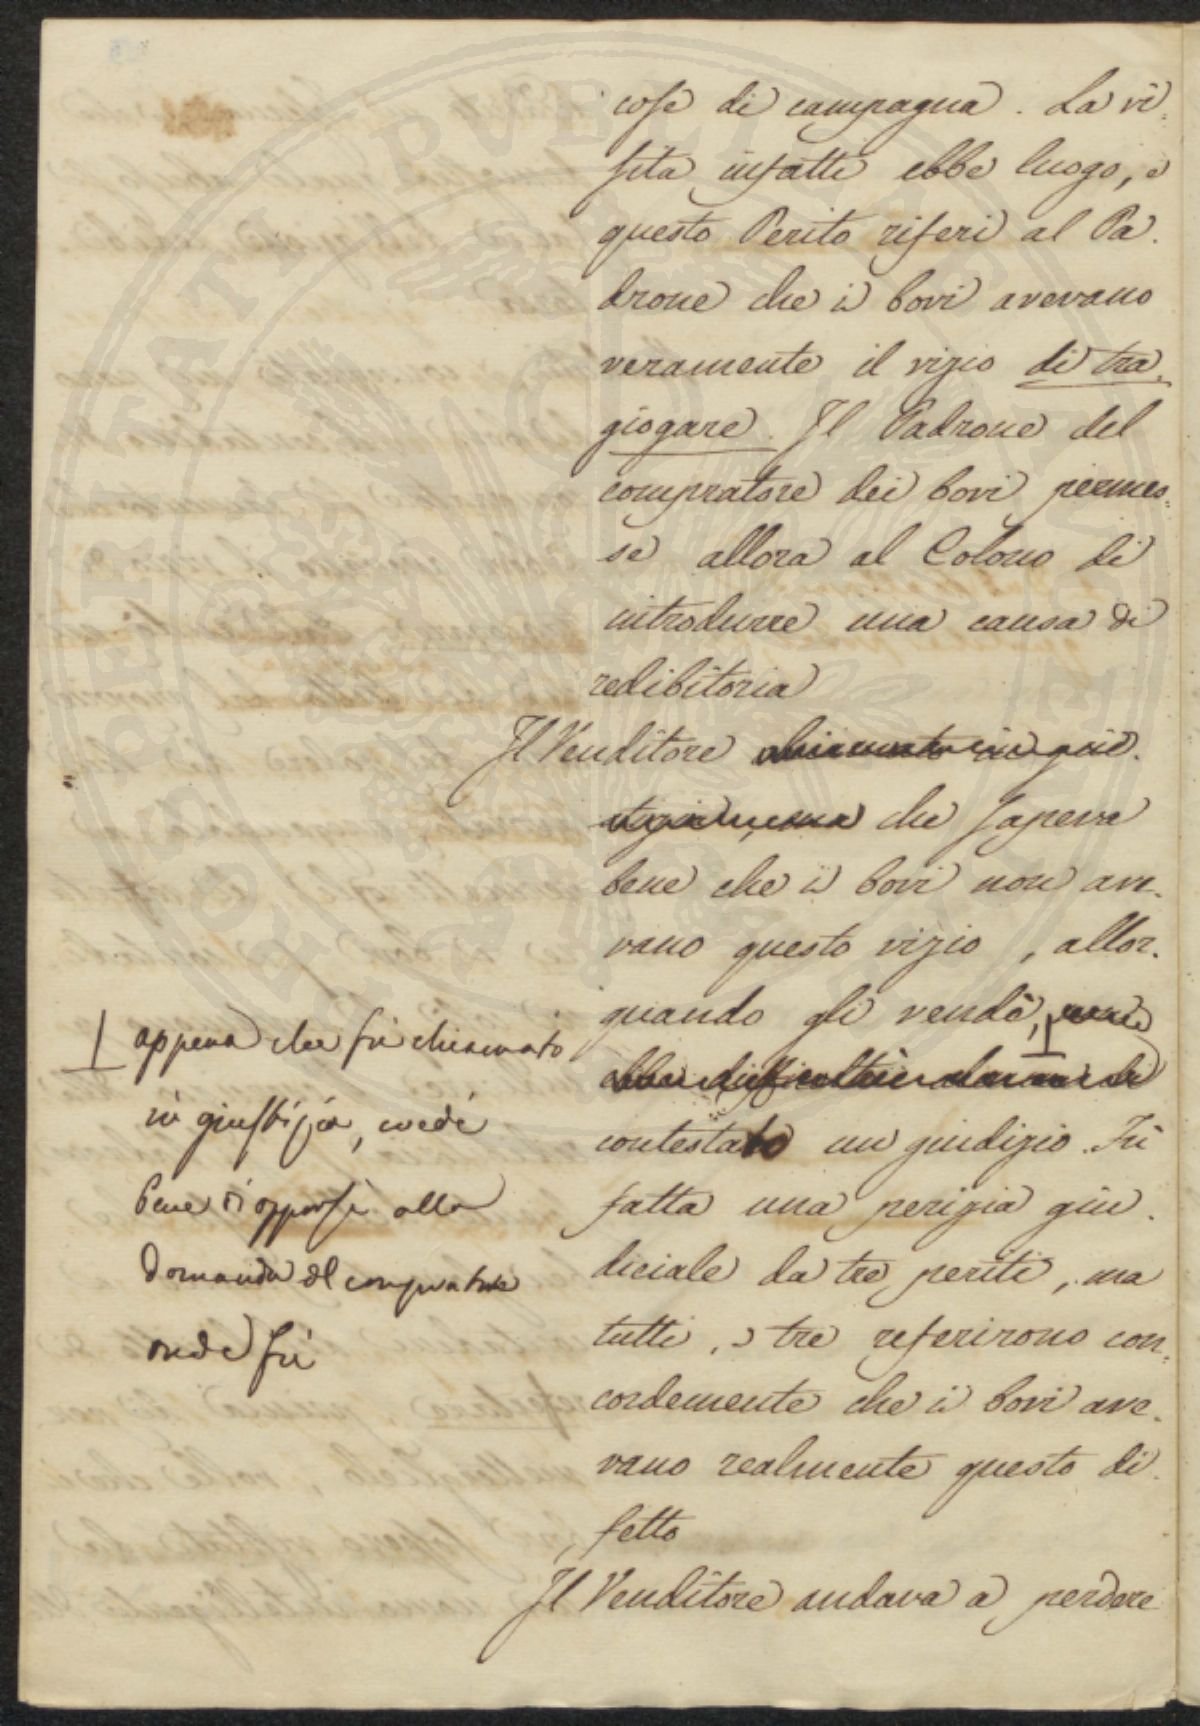 cose di campagna. La vi-
sita infatti ebbe luogo, e
questo Perito riferì al Pa-
drone che i bovi avevano
veramente il vizio di tra-
giogare. Il Padrone del
compratore dei bovi permes-
se allora al Colono di
introdurre una causa di
redibitoria
Il Venditore chiamato in giu-
che sapeva
bene che i bovi non ave-
vano questo vizio, allor-
quando gli vendè,
ebbe difficoltà
contestato un giudizio. Fù
fatta una perizia giu-
diciale da tre periti, ma
tutti, e tre referirono con-
cordemente che i bovi ave-
vano realmente questo di-
fetto
Il Venditore andava a perdere
appena che fù chiamato
in giustizia, credè
bene di opporsi alla
domanda del compratore
onde fù
PVBLI